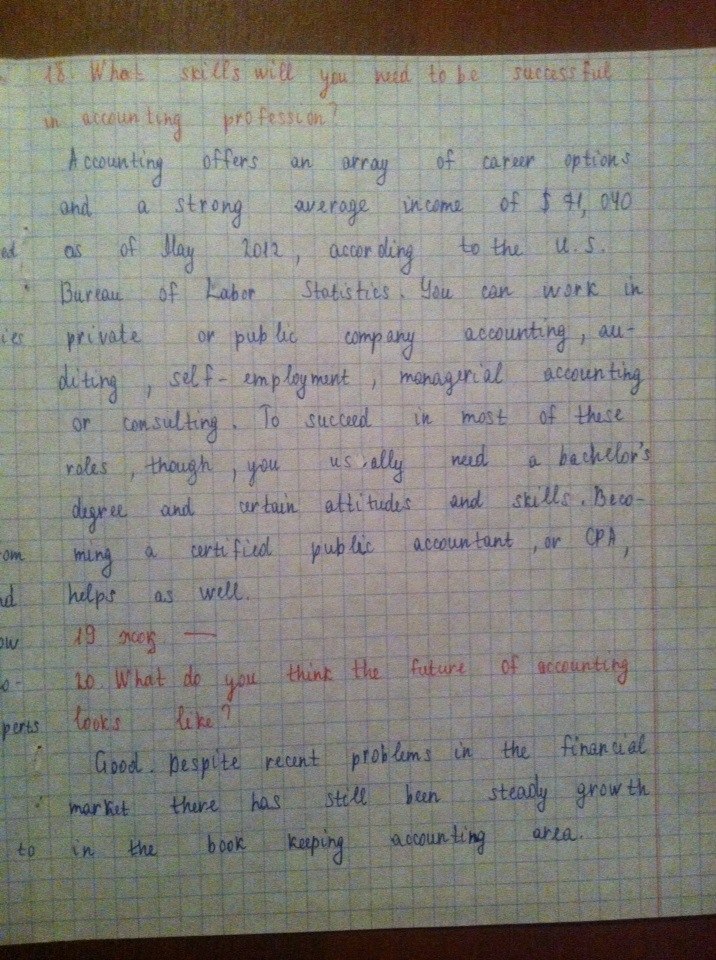 18. What skills will you need to be successful
in accounting profession?
Accounting offers an array of career options
and a strong average income of $ 71, 040
as of May 2012, according to the U.S.
Bureau of Labor Statistics. You can work in
private or public company accounting, au-
diting, self-employment, managerial accounting
or consulting. To succeed in most of these
roles, though, you usually need a bachelor's
degree and certain attitudes and skills. Beco-
ming a certified public accountant, or CPA,
helps as well.
19 —
20. What do you think the future of accounting
looks like?
Good. Despite recent problems in the financial
market there has still been steady growth
to in the book keeping accounting area.